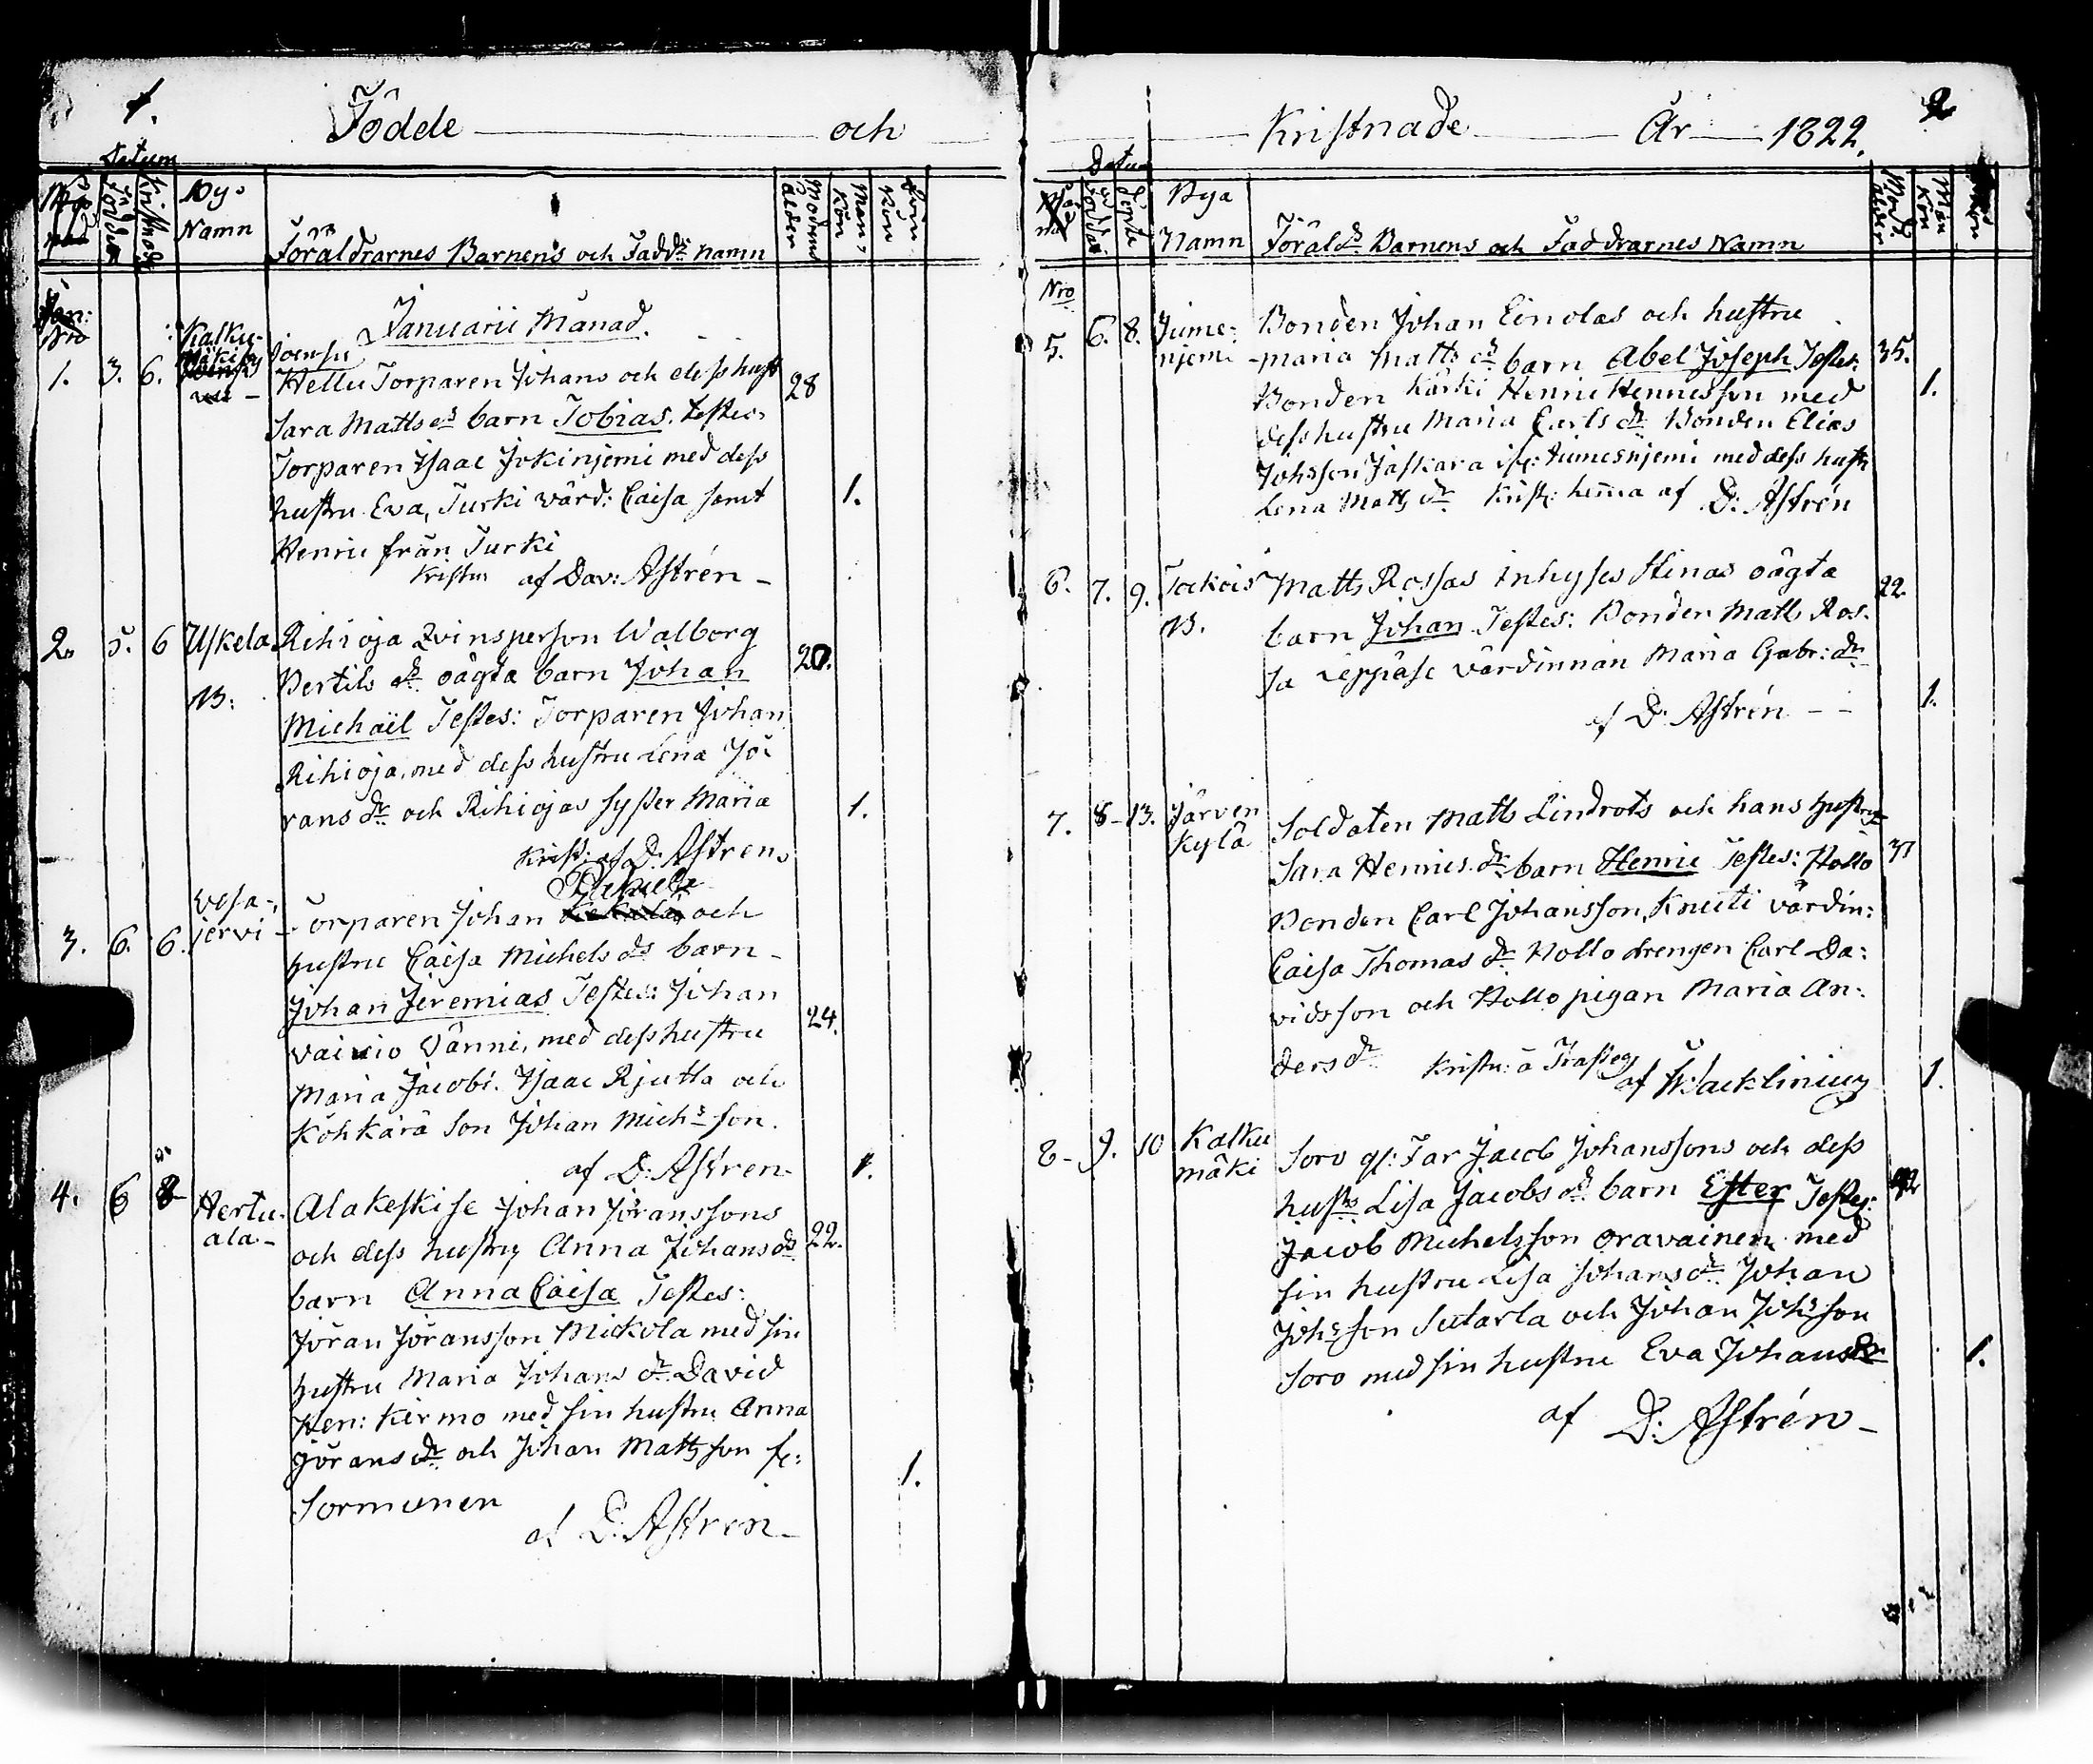 1.
Födde och
Datum
Födda
Kristnade
By-
Namn
Föräldrarnes Barnens och Fadd: namn
Modrens
ålder
Man-
Kön
Kön
Jan:
Nro
Januarii Månad.
1. 3. 6. Kalku-
mäki by
Joensu
Hellu Torparen Johans och dess hust 28
Sara Matts ds barn Tobias. testes.
Torparen Isaac Jokinjemi med dess
hustru Eva, Turki värd: Caisa samt 1.
Henric från Turki
Kristn af Dav: Astrén -
2. 5. 6 Uskela Rihioja Qvinsperson Walborg
B: Bertils ds oägta barn Johan 20.
Michaël Testes: Torparen Johan
Rihioja, med dess hustru Lena Jö
rans dr och Rihiojas syster Maria 1.
Krist: af D. Astren
3. 6. 6. Vesa-
jervi - Torparen Johan och
hustru Caisa Michels ds barn -
Johan Jeremias Testes: Johan 24.
Vainio Vänni, med dess hustru
Maria Jacobs. Isaac Rjutta och
Köhkärä son Johan Michs son.
af D: Astren - 1.
4. 6 8 Hertu-
ala -
Alakeskise Johan Jöranssons
och dess hustru Anna Johans ds 22.
barn Anna Caisa Testes:
Jöran Jöransson Mickola med sin
hustru Maria Johans dr David
Hen: Kirmo med sin hustru Anna
Jörans dr och Johan Mattsson
Sormunen 1.
af D: Astren -
2
Kristnade År 1822.
Datum
Döpte
Bya
Namn
Föräld: Barnens och Faddrarnes Namn
Modr.
ålder
Man
Kön
Nro
5. 6. 8. Jume-
njemi
Bonden Johan Einolas och hustru
Maria Matts ds barn Abel Joseph Testes: 35.
Bonden Kärki Henric Hennesson med 1.
dess hustru Maria Carls dr Bonden Elias
Johsson Jaskara Jumesnjemi med dess hustr
Lena Matts dr Krist: hema af D: Astrén
6. 7. 9. Tockois
B.
Matts Rossas Inhyses Stinas oägta 22.
barn Johan Testes: Bonden Matts Ros-
sa Leppäse värdinnan Maria Gabr: dr
af D: Astrén - - 1.
7. 8- 13. Järven
Kylä
Soldaten Matts Lindrots och hans hustru
Sara Henrics dr barn Henric Testes: Hollo 31
Bonden Carl Johansson, Knuuti värdin:
Caisa Thomas dr Hollo drengen Carl Da:
vidsson och Hollo pigan Maria An-
ders dr Kristn: å
af Wacklining 1.
8- 9. 10 Kalku
mäki
Soro Jacob Johanssons och dess
hustrs Lisa Jacobs ds barn Ester Testes:
Jacob Michelsson Oravainen med
sin hustru Lisa Johans dr Johan
Johsson Sutarla och Johan Johsson
Soro med sin hustru Eva Johans dr 1.
af D: Astrén -